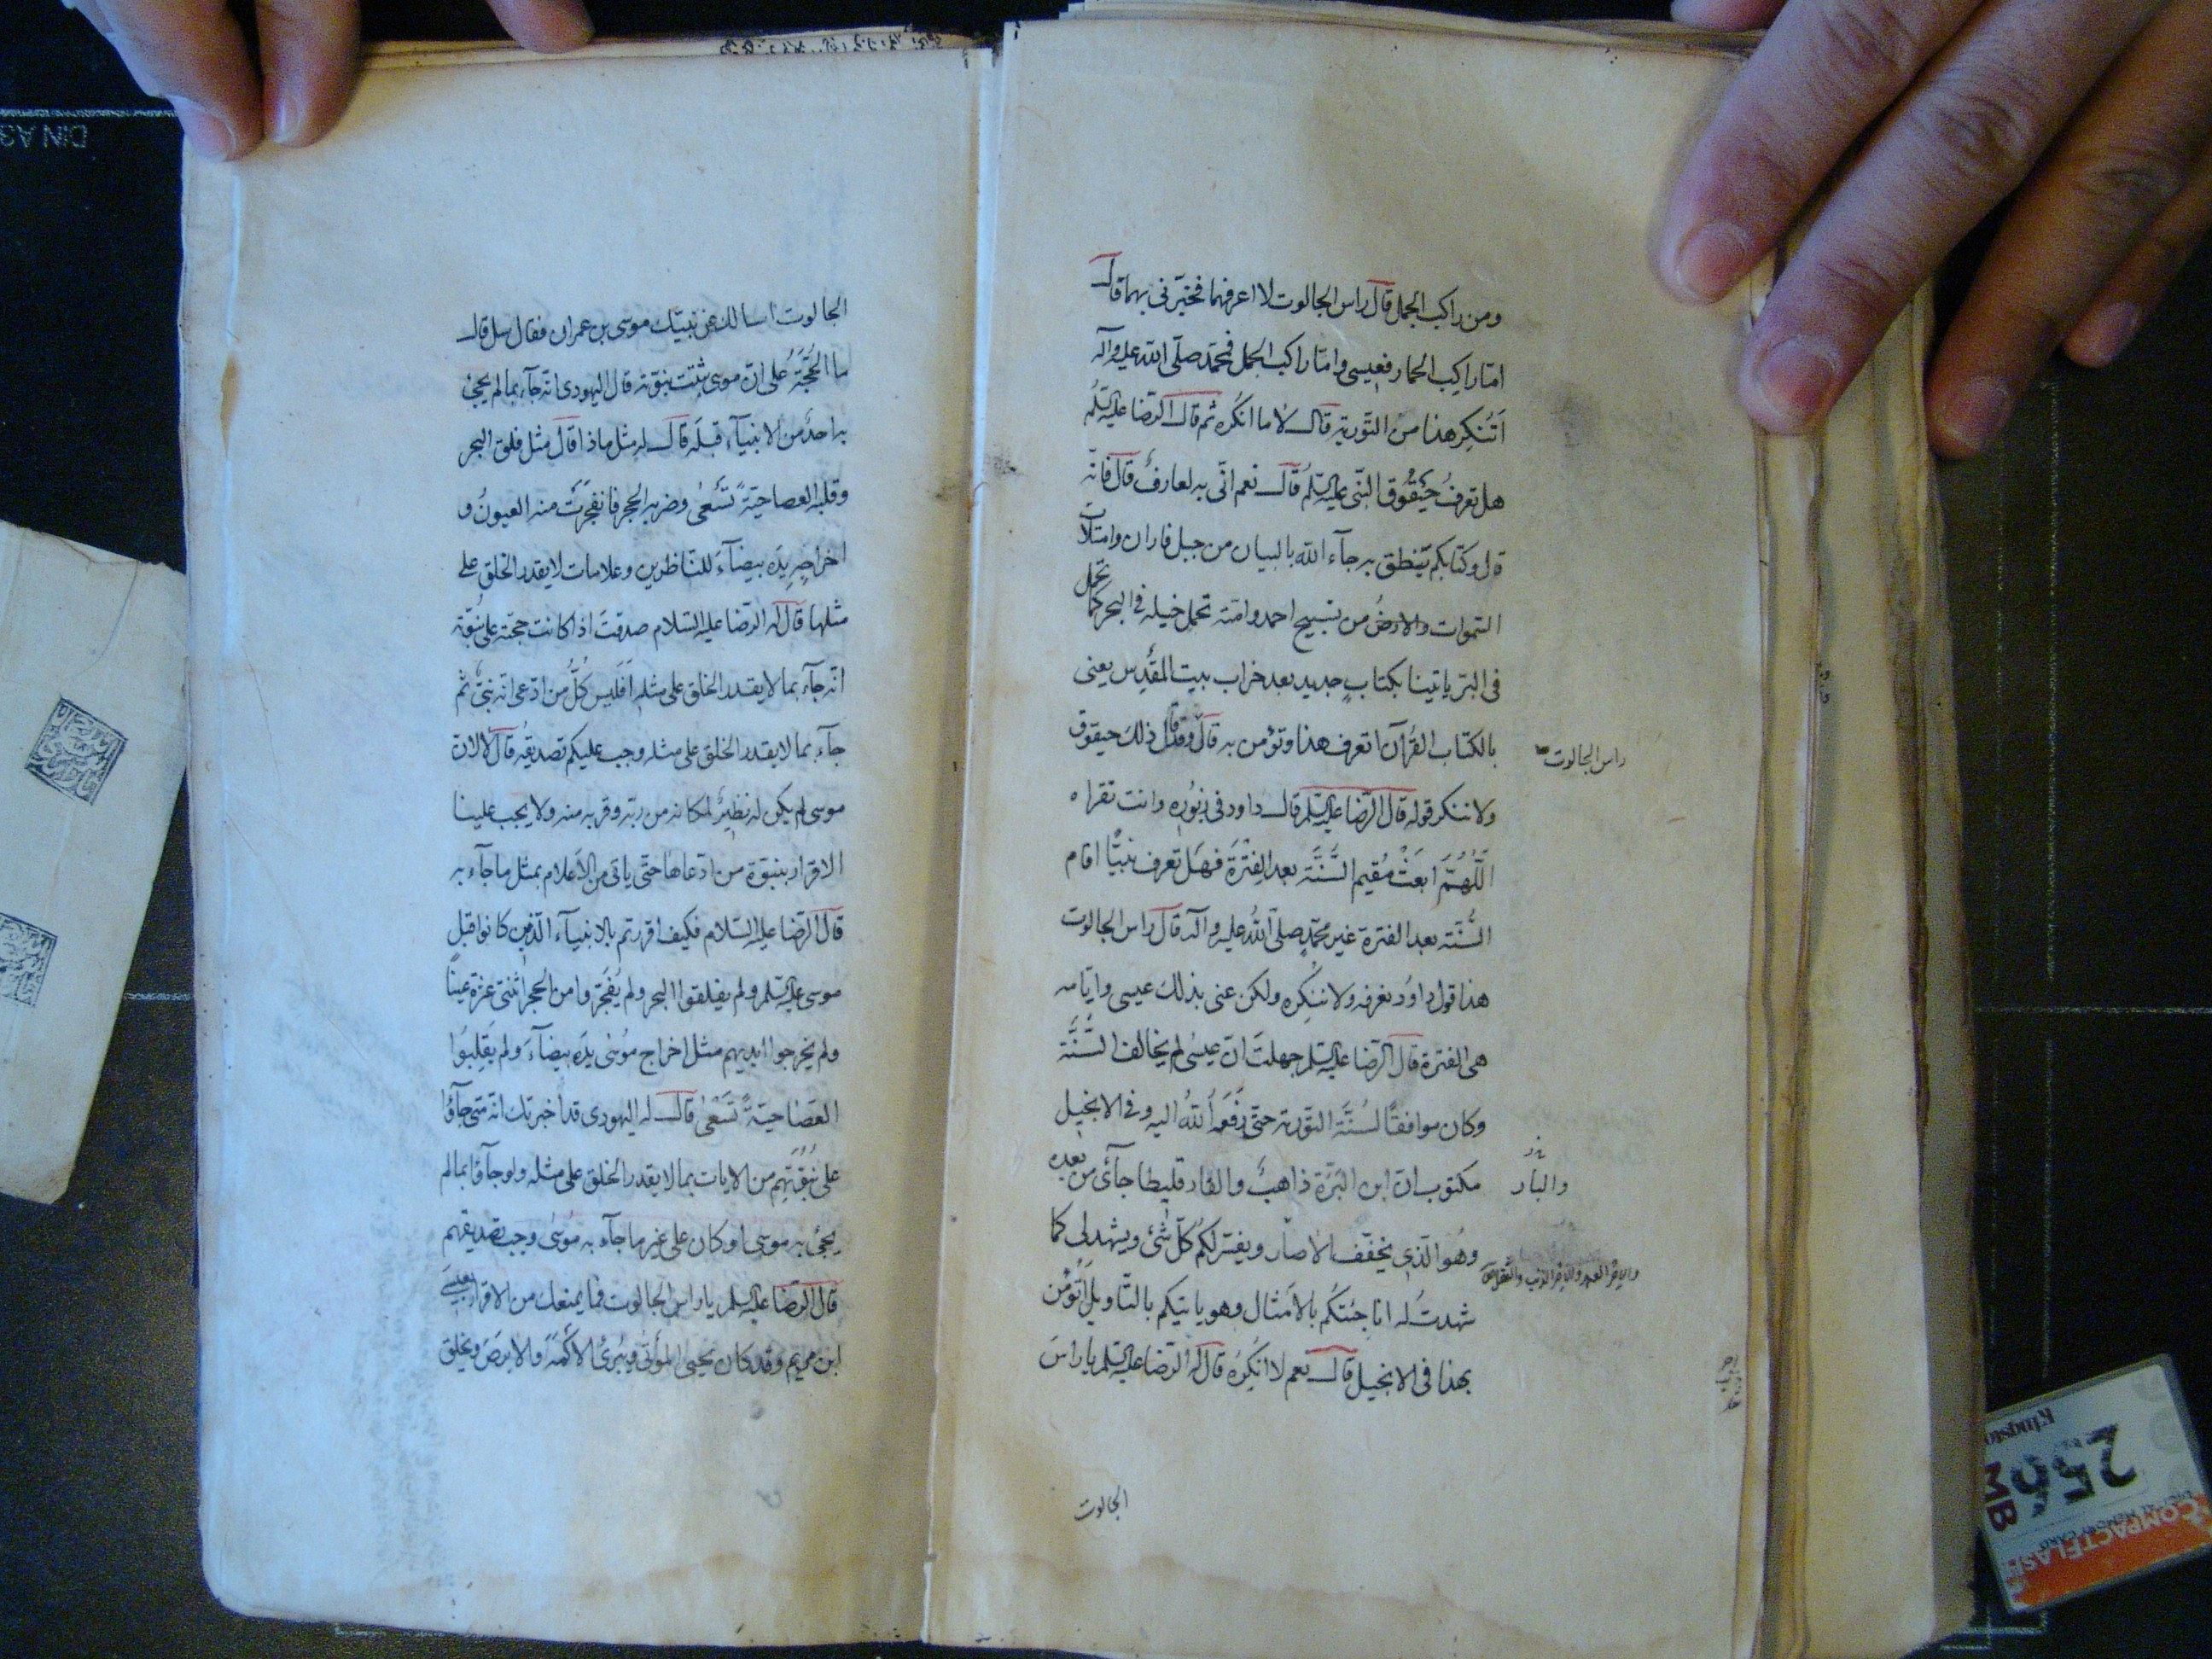 ومن راكب الجمل قال راس الجالوت لا اعرفهما فخبرنى بهما قال
امّا راكب الحمار فعيسى وامّا راكب الجمل فمحمّد صلّى الله عليه وآله
اَتُنكِر هذا من التّورية قال لا ما انكره ثم قال الرّضا عليه السّلم
هل تعرف حيقوق النّبى عليه السّلم قال نعم انّى به لعارفٌ قال فانّه
قال وكتابكم يَنطق به جآء الله بالبيان من جبل فاران وامتلات
السّموات والارضُ من تسبيح احمد وامّته تحمل خيله فى البحر كما تحمل
فى البرّ ياتينا بكتابٍ جديد بعد خراب بيت المقدِس يعنى
بالكتاب القُرآن اتعرف هذا وتؤمن به قال وقد قال ذلك حيقوق
راس الجالوت
ولا ننكر قوله قال الرّضا عليه السّلم قال داود فى زبُوره وانت تقراه
اَللّٰهُمَّ ابعَثْ مُقيم السُّنَّة بعد الفِتْرَة فهَل تعرف نبيًّا اقام
السُّنَّة بعد الفترة غير محمّدٍ صلّى اللهُ عليه وآله قال راس الجالوت
هذا قول داوُد نعرفه ولا ننكِره ولكن عنى بذلك عيسى وايّامه
هى الفترة قال الرّضا عليه السّلم جهلتَ انّ عيسٰى لم يخالف السُّنَّة
وكان موافقًا لسُنَّة التّورية حتّى رَفَعه اللهُ اليه وفى الانجيل
مكتوب انّ ابن البَرّة ذاهبٌ والفارقليطا جآئى من بعده
والبار
وهُو الّذى يخفّف الاٰصار ويفسّر لكُم كلّ شئ ويشهد لى كما
شهدتُ له انا جئتكُم بالاَمثال وهو ياتيكم بالتّاويل اَتؤمن
بهذا فى الانجيل قال نعم لا انكِرُه قال له الرّضا عليه السّلم يا راسَ
الجالوت
الجالوت اسالك عن نبيّك موسى بن عمران فقال سل قال
ما الحُجّةُ على انّ موسى ثبتت نبوّته قال اليهودى انّه جآء بما لم يجئ
به احدٌ من الانبيآء قبلَه قال له مثل ماذا قال مثل فلق البحر
وقلبه العصا حيّةً تَسْعٰى وضربه الحجر فانفجَرَت منه العيونُ و
اخراجه يدَه بيضآءَ للنّاظرين وعلامات لا يقدر الخلق على
مثلها قال له الرّضا عليه السّلام صدقتَ اذا كانت حجّته على نبوّته
انّه جآء بما لا يقدر الخلق على مثله اَفَليس كُلُّ من ادّعى انّه نبىّ ثم
جآء بما لا يقدر الخلق على مثله وجب عليكم تصديقه قال لا لانّ
موسى لم يكن له نظيرٌ لمكانه من ربّه وقربه منه ولا يجب علينا
الاقرار بنبوّة من ادّعاها حتّى ياتى من الاَعلام بمثل ما جآء به
قال الرّضا عليه السّلام فكيف اقررتم بالانبيآء الّذين كانوا قبل
موسى عليه السّلم ولم يفلقوا البحر ولم يُفَجّروا من الحجر اثنتى عشرة عينًا
ولم يخرجوا ايديهم مثل اخراج موسٰى يدَه بيضآءَ ولم يَقلِبُوا
العَصَا حيّةً تَسْعٰى قال له اليهودى قد اخبرتك انّه متى جآؤا
على نُبُوَّتِهِم من الايات بما لا يقدر الخلق على مثله ولو جآؤا بما لم
يجئ به موسى او كان على غير ما جآء به مُوسٰى وجب تصديقهم
قال الرّضا عليه السّلم يا راس الجالوت فما يمنعك من الاقرار بعيسَى
ابن مريم وقد كان يحيى الموتٰى ويُبرئُ الاَكْمَهَ والابرَصَ ويخلق
Kingston
256
MB
COMPACTFLASH
DIN A3